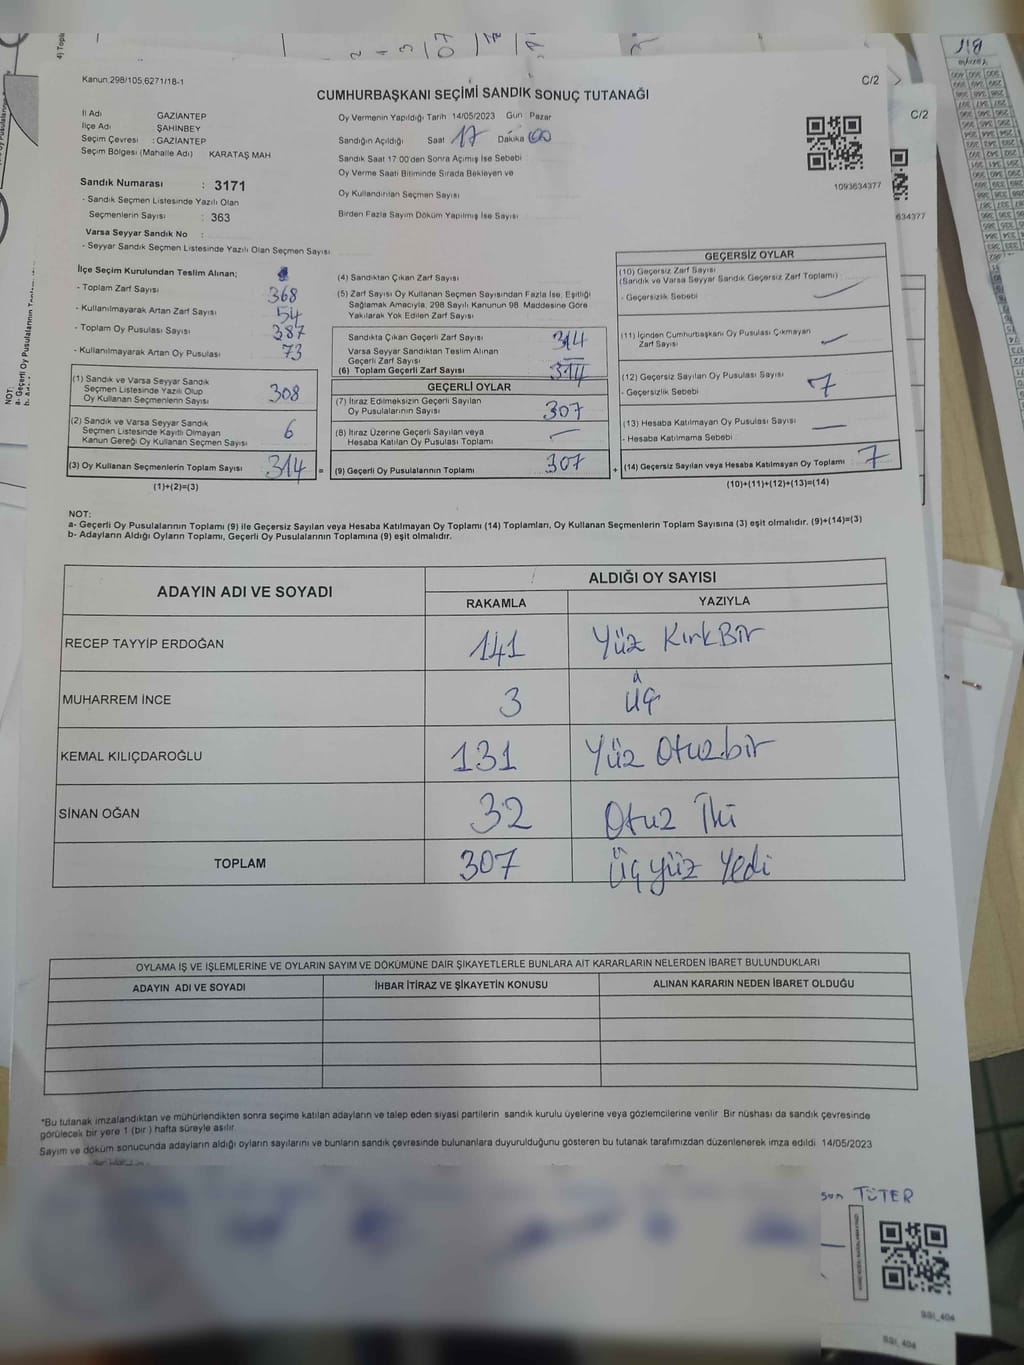 Kanun:298/105,6271/18-1
C/2
CUMHURBAŞKANI SEÇİMİ SANDIK SONUÇ TUTANAĞI
İl Adı GAZİANTEP
İlçe Adı ŞAHİNBEY
Seçim Çevresi : GAZİANTEP
Seçim Bölgesi (Mahalle Adı) KARATAŞ MAH
Oy Vermenin Yapıldığı Tarih 14/05/2023 Gün Pazar
Sandığın Açıldığı Saat 17 Dakika 00
Sandık Saat 17 00'den Sonra Açımış İse Sebebi
Oy Verme Saati Bitiminde Sırada Bekleyen ve
Oy Kullandırılan Seçmen Sayısı
Birden Fazla Sayım Döküm Yapılmış İse Sayısı
1093634377
C/2
634377
Sandık Numarası : 3171
- Sandık Seçmen Listesinde Yazılı Olan
Seçmenlerin Sayısı : 363
Varsa Seyyar Sandık No :
- Seyyar Sandık Seçmen Listesinde Yazılı Olan Seçmen Sayısı
İlçe Seçim Kurulundan Teslim Alınan;
- Toplam Zarf Sayısı 368
- Kullanılmayarak Artan Zarf Sayısı 54
- Toplam Oy Pusulası Sayısı 387
- Kullanılmayarak Artan Oy Pusulası 73
(1) Sandık ve Varsa Seyyar Sandık
Seçmen Listesinde Yazılı Olup
Oy Kullanan Seçmenlerin Sayısı 308
(2) Sandık ve Varsa Seyyar Sandık
Seçmen Listesinde Kayıtlı Olmayan
Kanun Gereği Oy Kullanan Seçmen Sayısı 6
(3) Oy Kullanan Seçmenlerin Toplam Sayısı 314
(1)+(2)=(3)
(4) Sandıktan Çıkan Zarf Sayısı
(5) Zarf Sayısı Oy Kullanan Seçmen Sayısından Fazla İse, Eşitliği
Sağlamak Amacıyla, 298 Sayılı Kanunun 98 Maddesine Göre
Yakılarak Yok Edilen Zarf Sayısı
Sandıkta Çıkan Geçerli Zarf Sayısı 314
Varsa Seyyar Sandıktan Teslim Alınan
Geçerli Zarf Sayısı
(6) Toplam Geçerli Zarf Sayısı 314
GEÇERLİ OYLAR
(7) İtiraz Edilmeksizin Geçerli Sayılan
Oy Pusulalarının Sayısı 307
(8) İtiraz Üzerine Geçerli Sayılan veya
Hesaba Katılan Oy Pusulası Toplamı
= (9) Geçerli Oy Pusulalarının Toplamı 307
GEÇERSİZ OYLAR
(10) Geçersiz Zarf Sayısı
(Sandık ve Varsa Seyyar Sandık Geçersiz Zarf Toplamı)
- Geçersizlik Sebebi
(11) İçinden Cumhurbaşkanı Oy Pusulası Çıkmayan
Zarf Sayısı
(12) Geçersiz Sayılan Oy Pusulası Sayısı 7
- Geçersizlik Sebebi
(13) Hesaba Katılmayan Oy Pusulası Sayısı
- Hesaba Katılmama Sebebi
+ (14) Geçersiz Sayılan veya Hesaba Katılmayan Oy Toplamı 7
(10)+(11)+(12)+(13)=(14)
NOT:
a- Geçerli Oy Pusulalarının Toplamı (9) ile Geçersiz Sayılan veya Hesaba Katılmayan Oy Toplamı (14) Toplamları, Oy Kullanan Seçmenlerin Toplam Sayısına (3) eşit olmalıdır. (9)+(14)=(3)
b- Adayların Aldığı Oyların Toplamı, Geçerli Oy Pusulalarının Toplamına (9) eşit olmalıdır.
ADAYIN ADI VE SOYADI
ALDIĞI OY SAYISI
RAKAMLA YAZIYLA
RECEP TAYYİP ERDOĞAN 141 Yüz KırkBir
MUHARREM İNCE 3 Üç
KEMAL KILIÇDAROĞLU 131 Yüz Otuzbir
SİNAN OĞAN 32 Otuz İki
TOPLAM 307 Üçyüz Yedi
OYLAMA İŞ VE İŞLEMLERİNE VE OYLARIN SAYIM VE DÖKÜMÜNE DAİR ŞİKAYETLERLE BUNLARA AİT KARARLARIN NELERDEN İBARET BULUNDUKLARI
ADAYIN ADI VE SOYADI İHBAR İTİRAZ VE ŞİKAYETİN KONUSU ALINAN KARARIN NEDEN İBARET OLDUĞU
*Bu tutanak imzalandıktan ve mühürlendikten sonra seçime katılan adayların ve talep eden siyasi partilerin sandık kurulu üyelerine veya gözlemcilerine verilir Bir nüshası da sandık çevresinde
görülecek bir yere 1 (bir) hafta süreyle asılır.
Sayım ve döküm sonucunda adayların aldığı oyların sayılarını ve bunların sandık çevresinde bulunanlara duyurulduğunu gösteren bu tutanak tarafımızdan düzenlenerek imza edildi 14/05/2023
son TÜTER
SSI_404
SSI_404